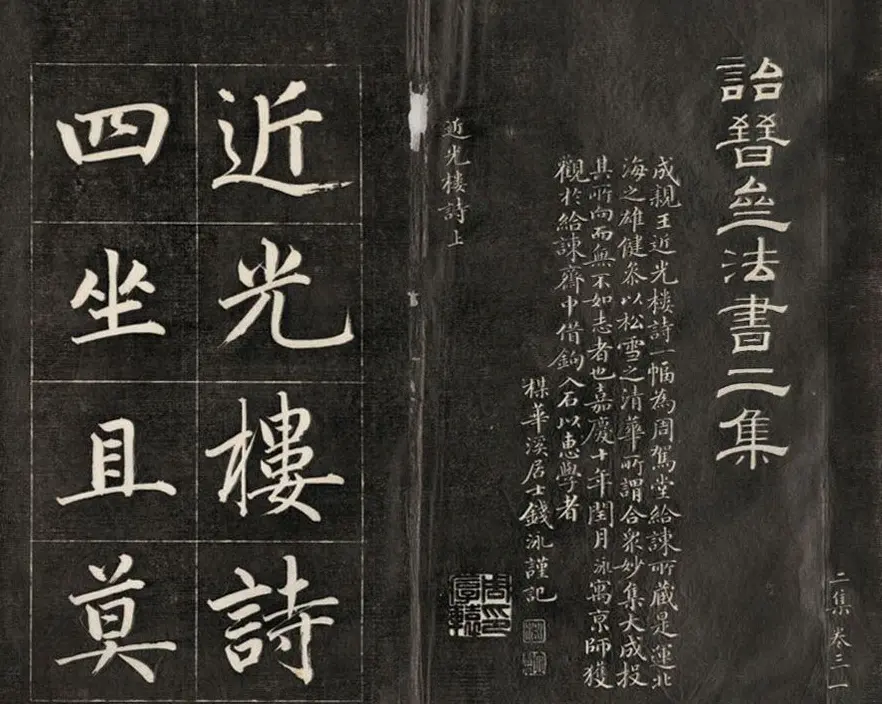 二集卷三 一
詒晉亝法書二集
成親王近光樓詩一幅為周駕堂給諫所藏是運北
海之雄健叅以松雪之清華所謂合衆妙集大成投
其所向而無不如志者也嘉慶十年閏月泳寓京師獲
觀於給諫齋中借鉤入石以惠學者
楳華溪居士錢泳謹記
周印厚轅
近光樓詩上
近光樓詩
四坐且莫